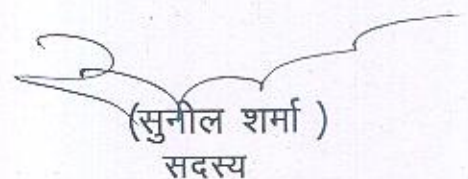 (सुनील शर्मा )
सदस्य